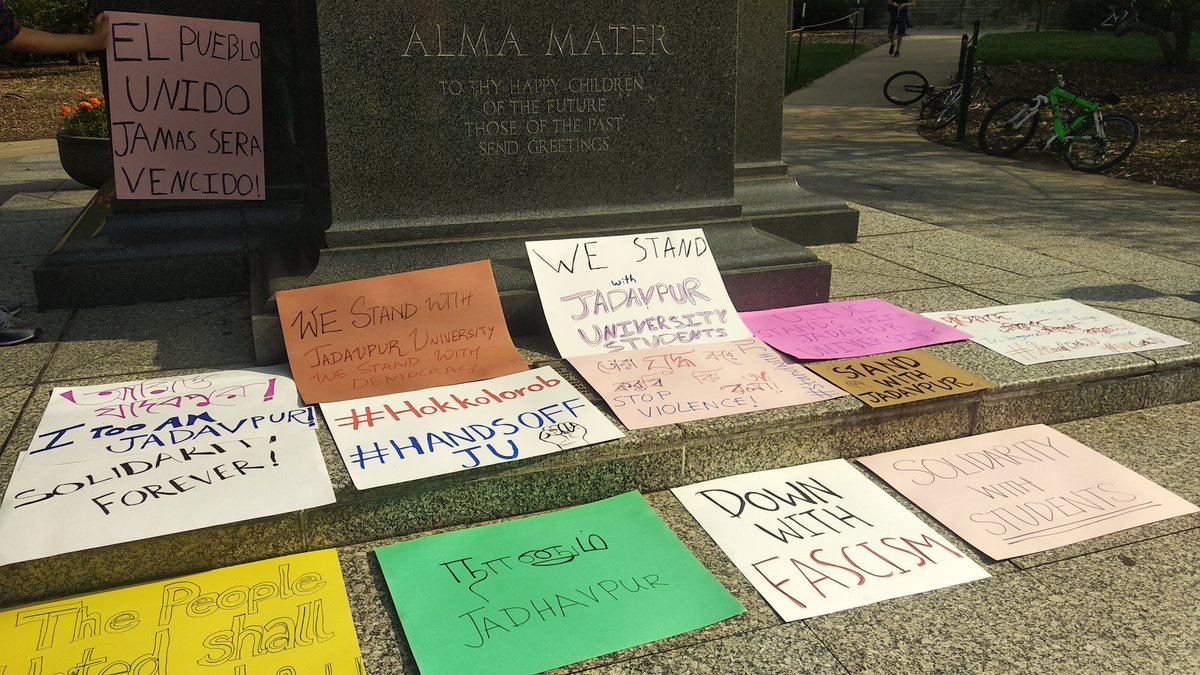 EL PUEBLO
UNIDO
JAMAS SERA
VENCIDO!
ALMA MATER
TO THY HAPPY CHILDREN
OF THE FUTURE
THOSE OF THE PAST
SEND GREETINGS
WE STAND WITH
JADAVPUR UNIVERSITY
WE STAND WITH
DEMOCRACY
WE STAND
with
JADAVPUR
UNIVERSITY
STUDENTS
JADAVPUR
STAND
WITH
JADAVPUR
STOP
VIOLENCE!
#Hokkolorob
#HANDSOFF
JU
যাদবপুর!
I TOO AM
JADAVPUR!
SOLIDARITY
FOREVER!
SOLIDARITY
WITH
STUDENTS
DOWN
WITH
FASCISM
JADHAVPUR
The People
United shall